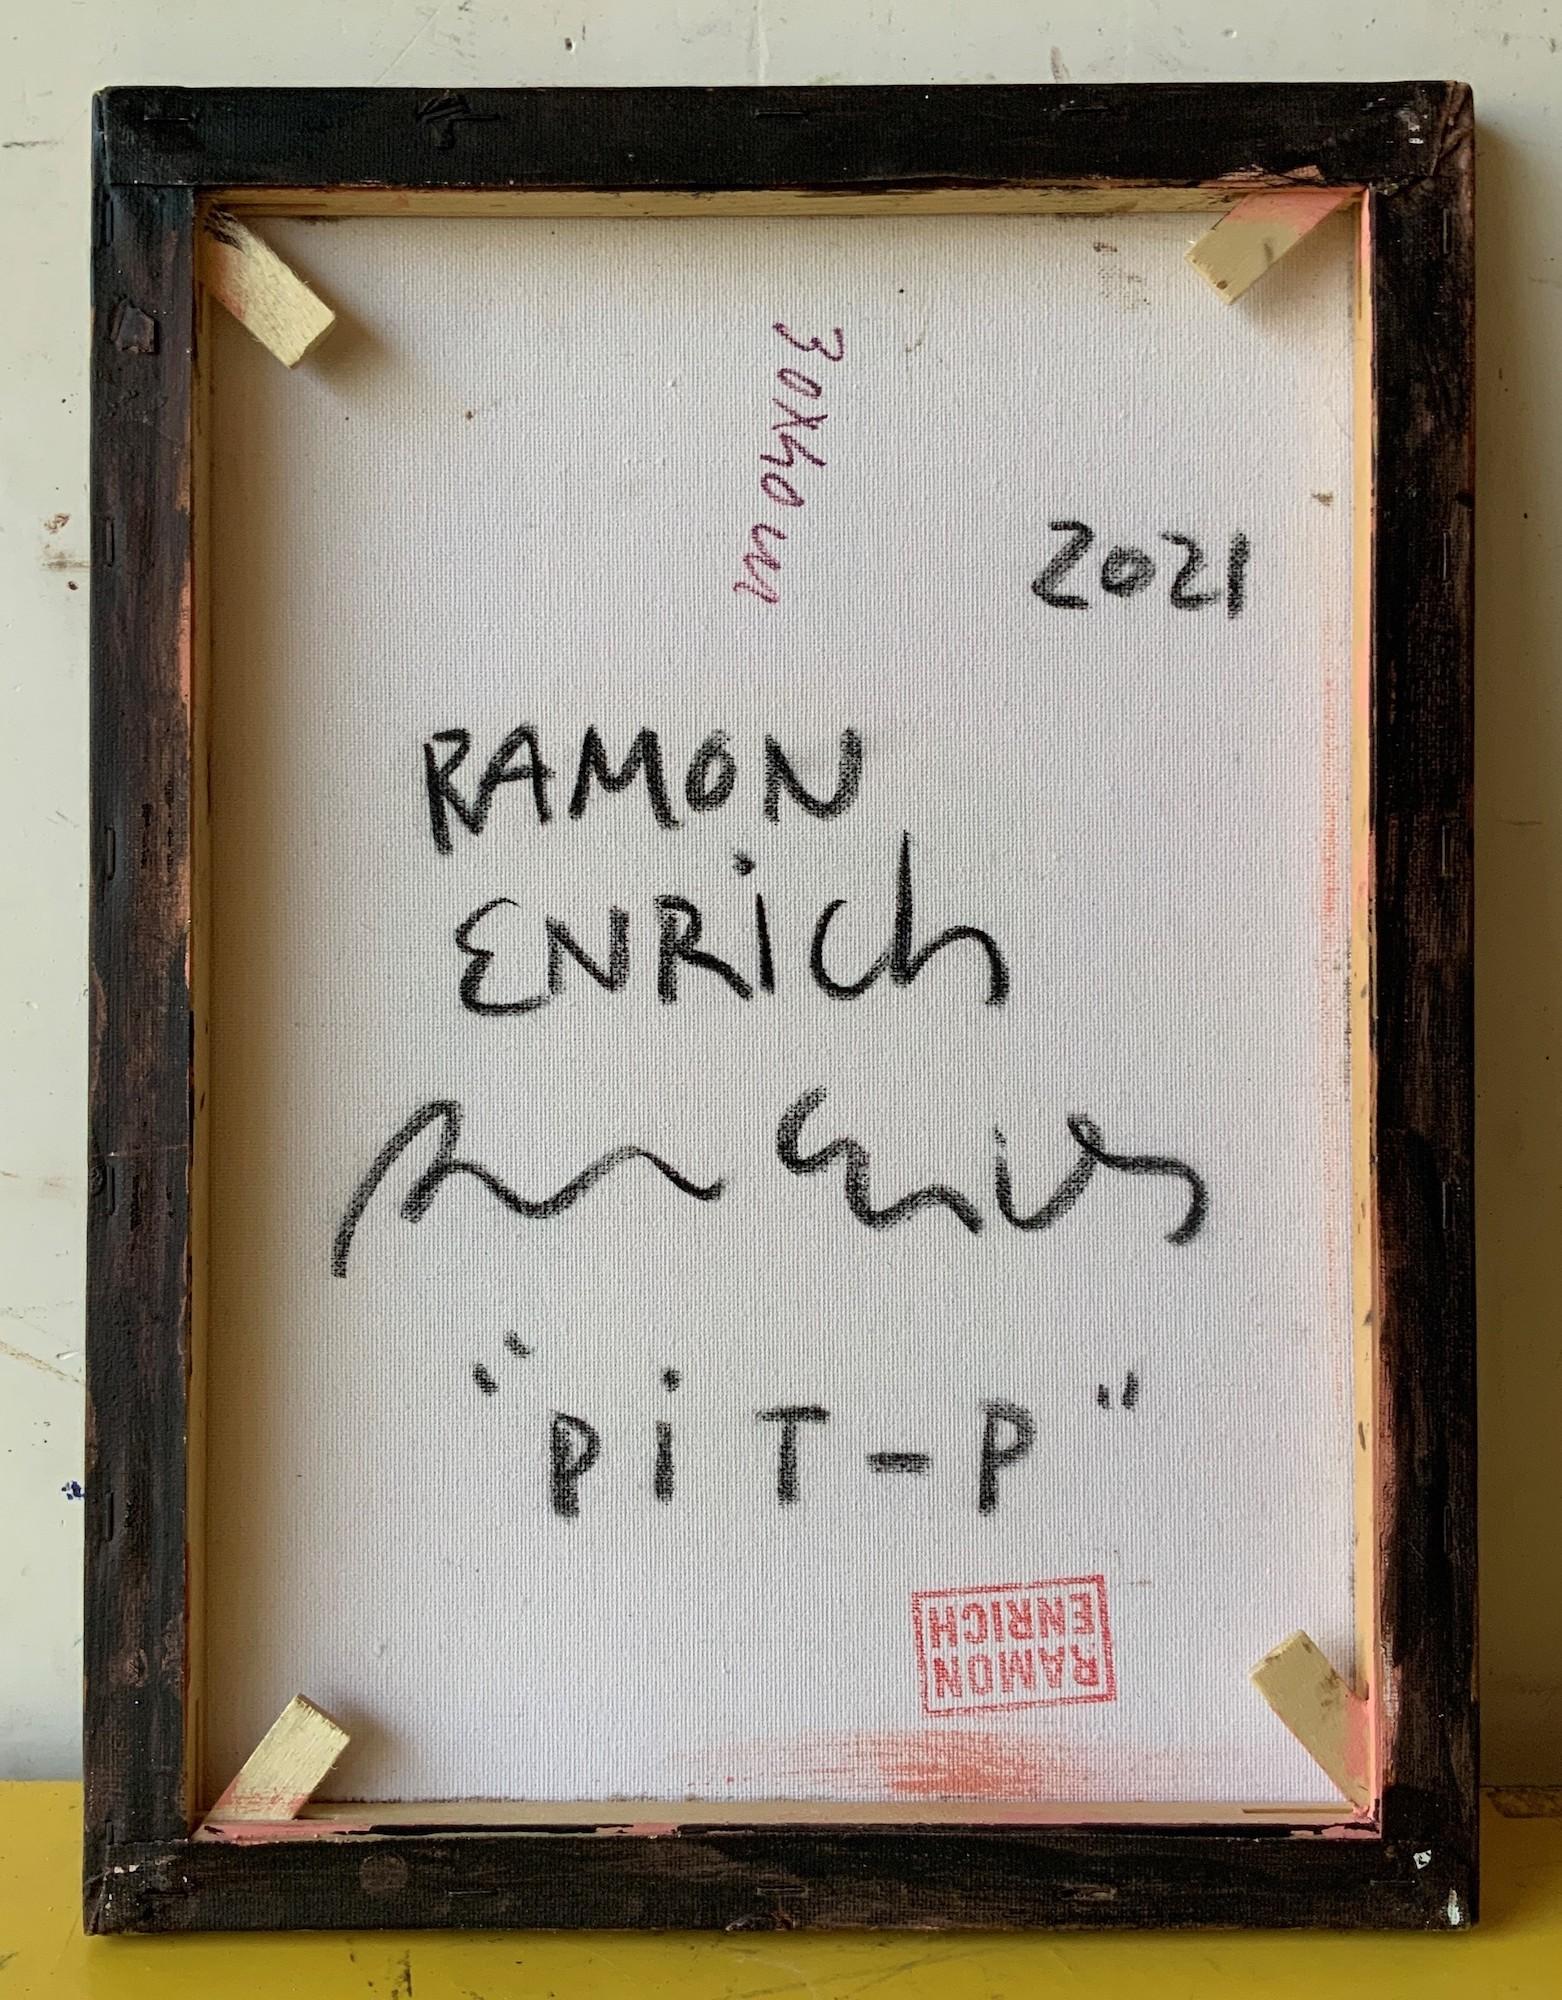 30x40 cm
2021
RAMON
ENRich
"PiT-P"
RAMON
ENRICH